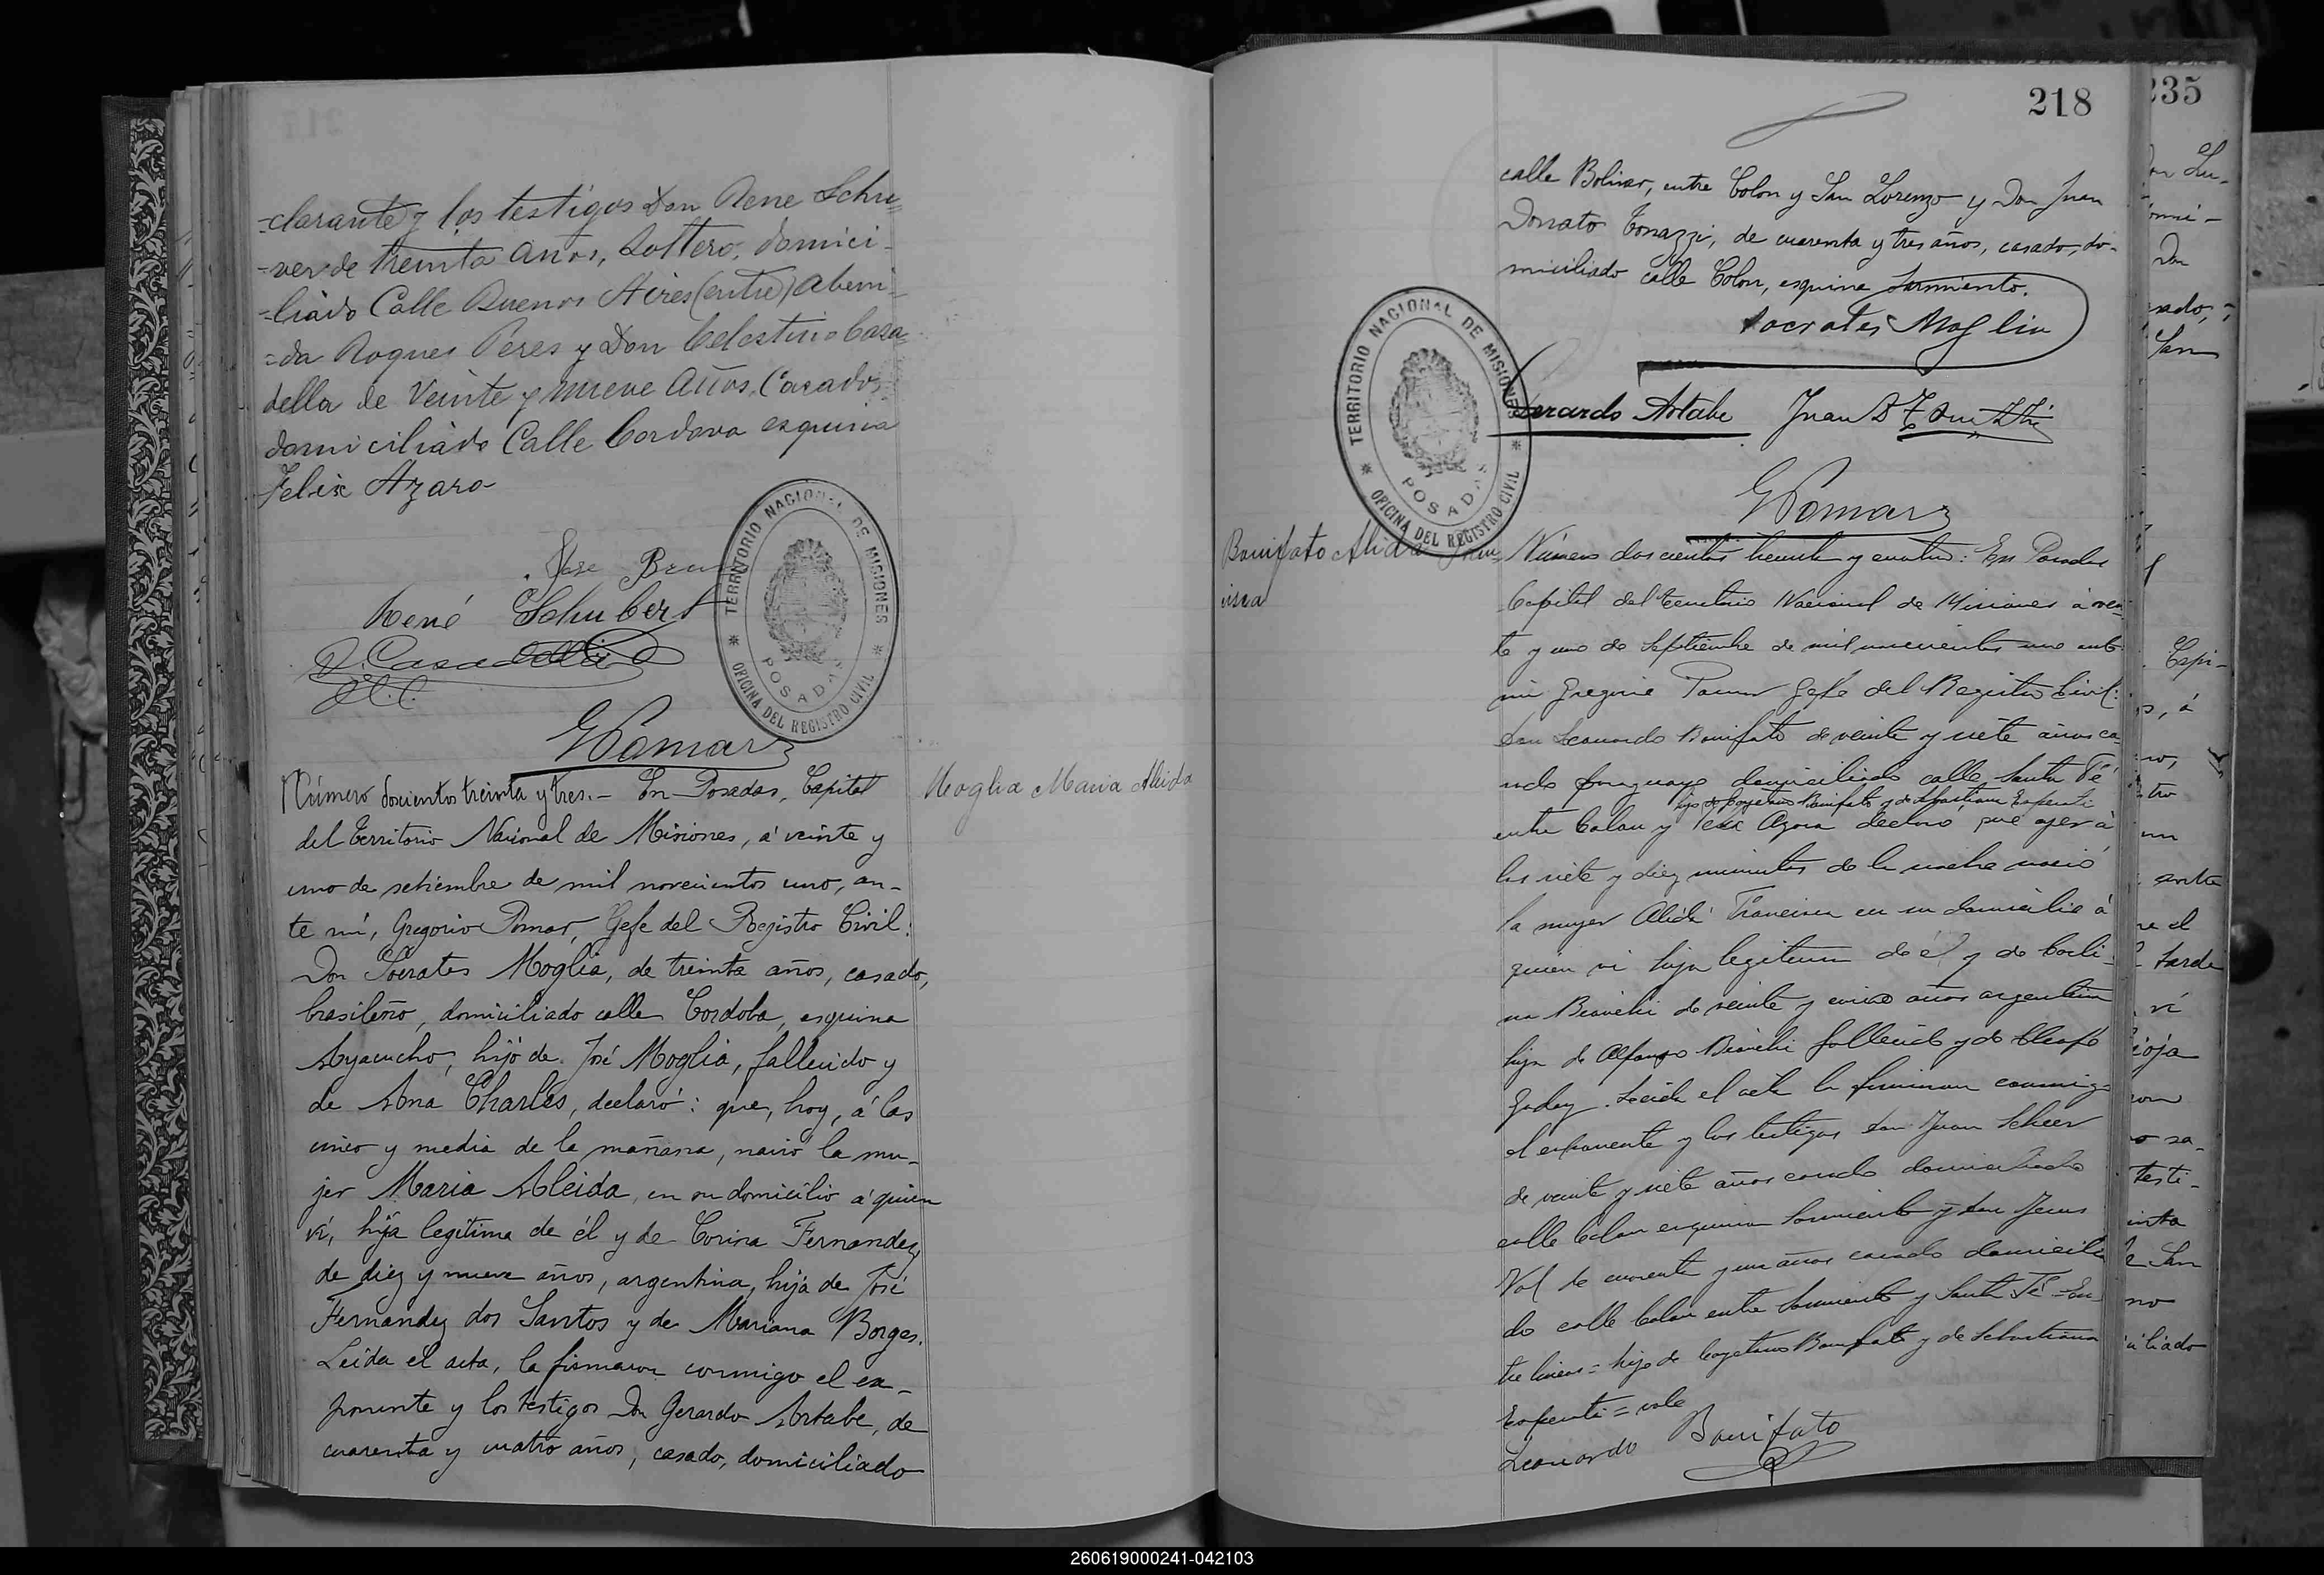 -clarante y los testigos Don Rene Schu=
=ver de treinta años, Soltero, domici-
=liado Calle Buenos Aires (entre) abeni-
=da Roques Peres y Don Celestino Casa=
della de Veinte y nueve Años, Casado,
domiciliado Calle Cordova esquina
Felix Azara
Jose
René Schubert
C. Casadella
GPomar
TERRITORIO NACIONAL DE MISIONES
POSADAS
OFICINA DEL REGISTRO CIVIL
Moglia Maria Aleida
Número doscientos treinta y tres.- En Posadas, Capital
del Territorio Nacional de Misiones, á veinte y
uno de setiembre de mil novecientos uno, an-
te mí, Gregorio Pomar, Gefe del Registro Civil:
Don Sócrates Moglia, de treinta años, casado,
brasileño, domiciliado calle Cordoba, esquina
Ayacucho, hijo de José Moglia, fallecido y
de Ana Charles, declaró: que, hoy, á las
cinco y media de la mañana, nació la mu-
jer Maria Aleida, en su domicilio á quien
ví, hija legítima de él y de Corina Fernandez,
de diez y nueve años, argentina, hija de José
Fernandez dos Santos y de Mariana Borges.
Leída el acta, la firmaron conmigo el ex-
ponente y los testigos Don Gerardo Artabe, de
cuarenta y cuatro años, casado, domiciliado
218
calle Bolivar, entre Colon y San Lorenzo y Don Juan
Donato Tonazzi, de cuarenta y tres años, casado, do-
miciliado calle Colon, esquina Sarmiento.
Socrates Moglia
Gerardo Artabe Juan D
GPomar
TERRITORIO NACIONAL DE MISIONES
POSADAS
OFICINA DEL REGISTRO CIVIL
Bonifato Alida Fran-
cisca
Número doscientos treinta y cuatro: En Posadas
Capital del Territorio Nacional de Misiones á vein-
te y uno de Septiembre de mil novecientos uno ante
mi Gregorio Pomar Gefe del Registro Civil:
don Leonardo Bonifato de veinte y siete años ca-
sado domiciliado calle Santa Fé
hijo de Cayetano Bonifato y de Sebastiana Esperiti
entre Colon y Felix Azara declaró que ayer á
las siete y diez minutos de la noche nació
la mujer Alida Francisca en su domicilio á
quien vi hija legitima de él y de
Bianchi de veinte y cinco años argentina
hija de Alfonso Bianchi fallecido y de
Godoy. Leida el acta la firmaron conmigo
el exponente y los testigos don Juan Scheer
de veinte y siete años casado domiciliado
calle Colon esquina Sarmiento y don Jesus
Val de cuarenta y un años casado domicilia
do calle Colon entre Sarmiento y Santa Fé =En
tre lineas= hijo de Cayetano Bonifato y de Sebastiana
Esperiti = vale
Leonardo Bonifato
235
260619000241-042103